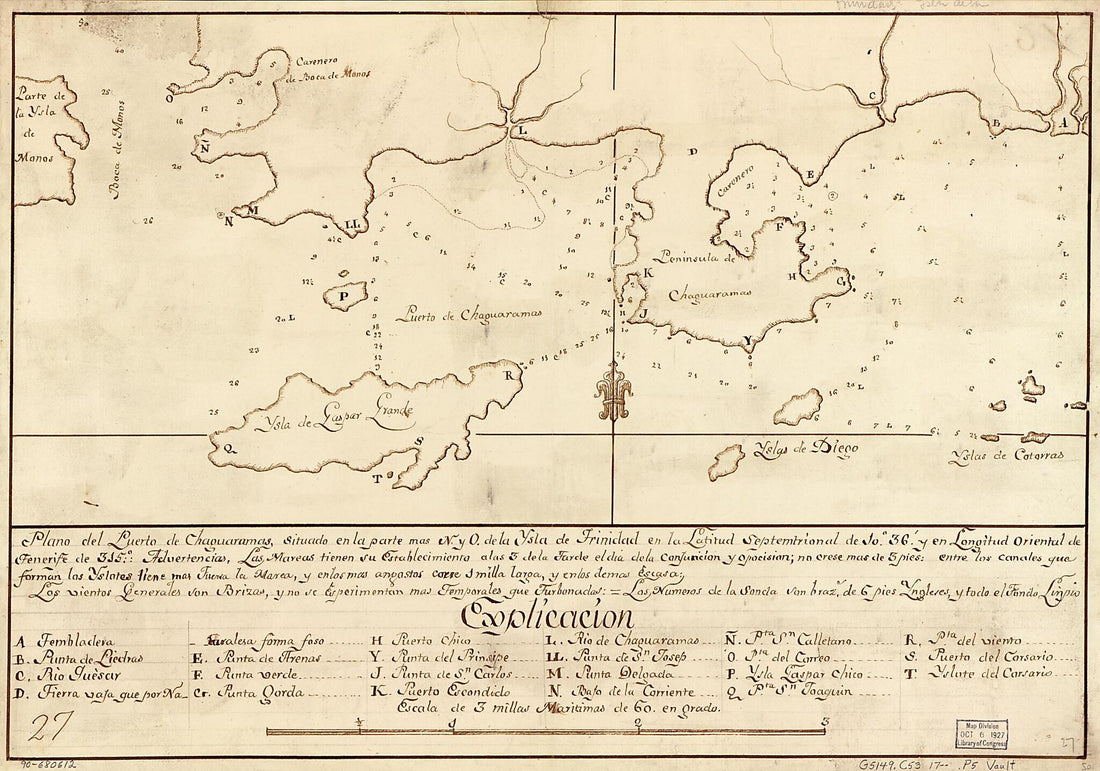 Carenero
de Boca de Monos
Parte de
la Ysla
de
Monos
Boca de Monos
Carenero
Peninsula de
Chaguaramas
Puerto de Chaguaramas
Ysla de Gaspar Grande
Yslas de Diego
Yslas de Cotorras
Plano del Puerto de Chaguaramas, Situado en la parte mas N. y O. de la Ysla de Trinidad en la Latitud Septemtrional de 10.° 36' y en Longitud Oriental de
Tenerife de 315.°: Advertencias, Las Mareas tienen su Establecimiento a las 3 de la Tarde el dia de la Conjuncion y opocision; no crese mas de 3 pies: entre los canales que
forman los Yslotes tiene mas fuersa la Marea, y en los mas angostos corre 1 milla larga, y en los demas Escasa;
Los vientos Generales son Brizas, y no se Experimentan mas Temporales que Turbonadas: = Los Numeros de la Sonda son braz.s de 6 pies Yngleses, y todo el Fondo Limpio
Explicacion
A Tembladera
B. Punta de
C. Rio
D. Tierra vaja que por Na-
turalesa forma foso
E. Punta de Arenas
F. Punta verde
G. Punta Gorda
H Puerto Chico
Y. Punta del Prinsipe
J. Punta de Sn Carlos
K Puerto Escondido
L. Rio de Chaguaramas
LL. Punta de Sn Josep
M. Punta Delgada
N. Bajo de la Corriente
Ñ. Pta Sn Calletano
O Pta del Correo
P. Ysla Gaspar Chico
Q Pta Sn Joaquin
R. Pta del viento
S. Puerto del Corsario
T Yslote del Corsario
Escala de 3 millas Maritimas de 60. en grado.
1 2 3
27
Map Division
OCT 6 1927
Library of Congress
27
90-680612
G5149.C53 17-- .P5 Vault